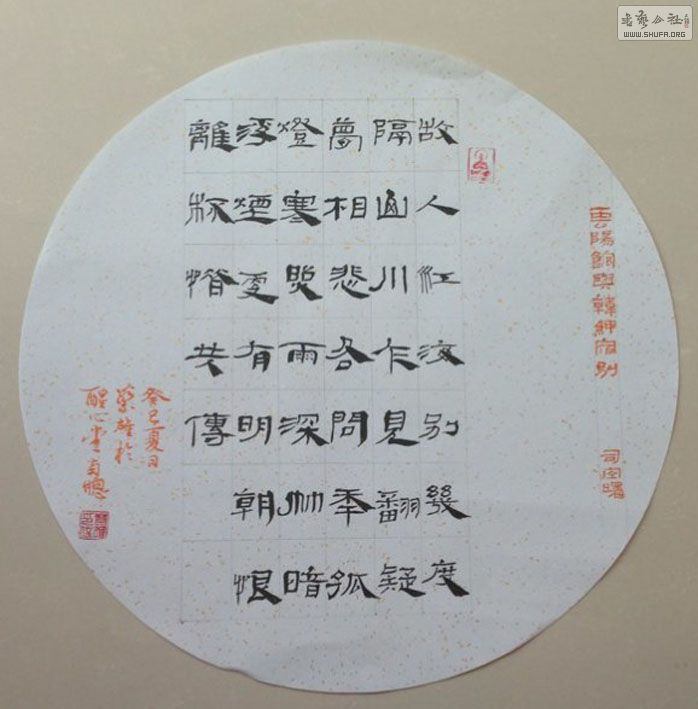 雲陽館與韓紳宿別
司空曙
故人江海別幾度
隔山川乍見翻疑
夢相悲各問年孤
燈寒照雨深竹暗
浮煙更有明朝恨
離杯惜共傳
癸巳夏日
雄於
醒心堂南牕
書藝公社
WWW.SHUFA.ORG